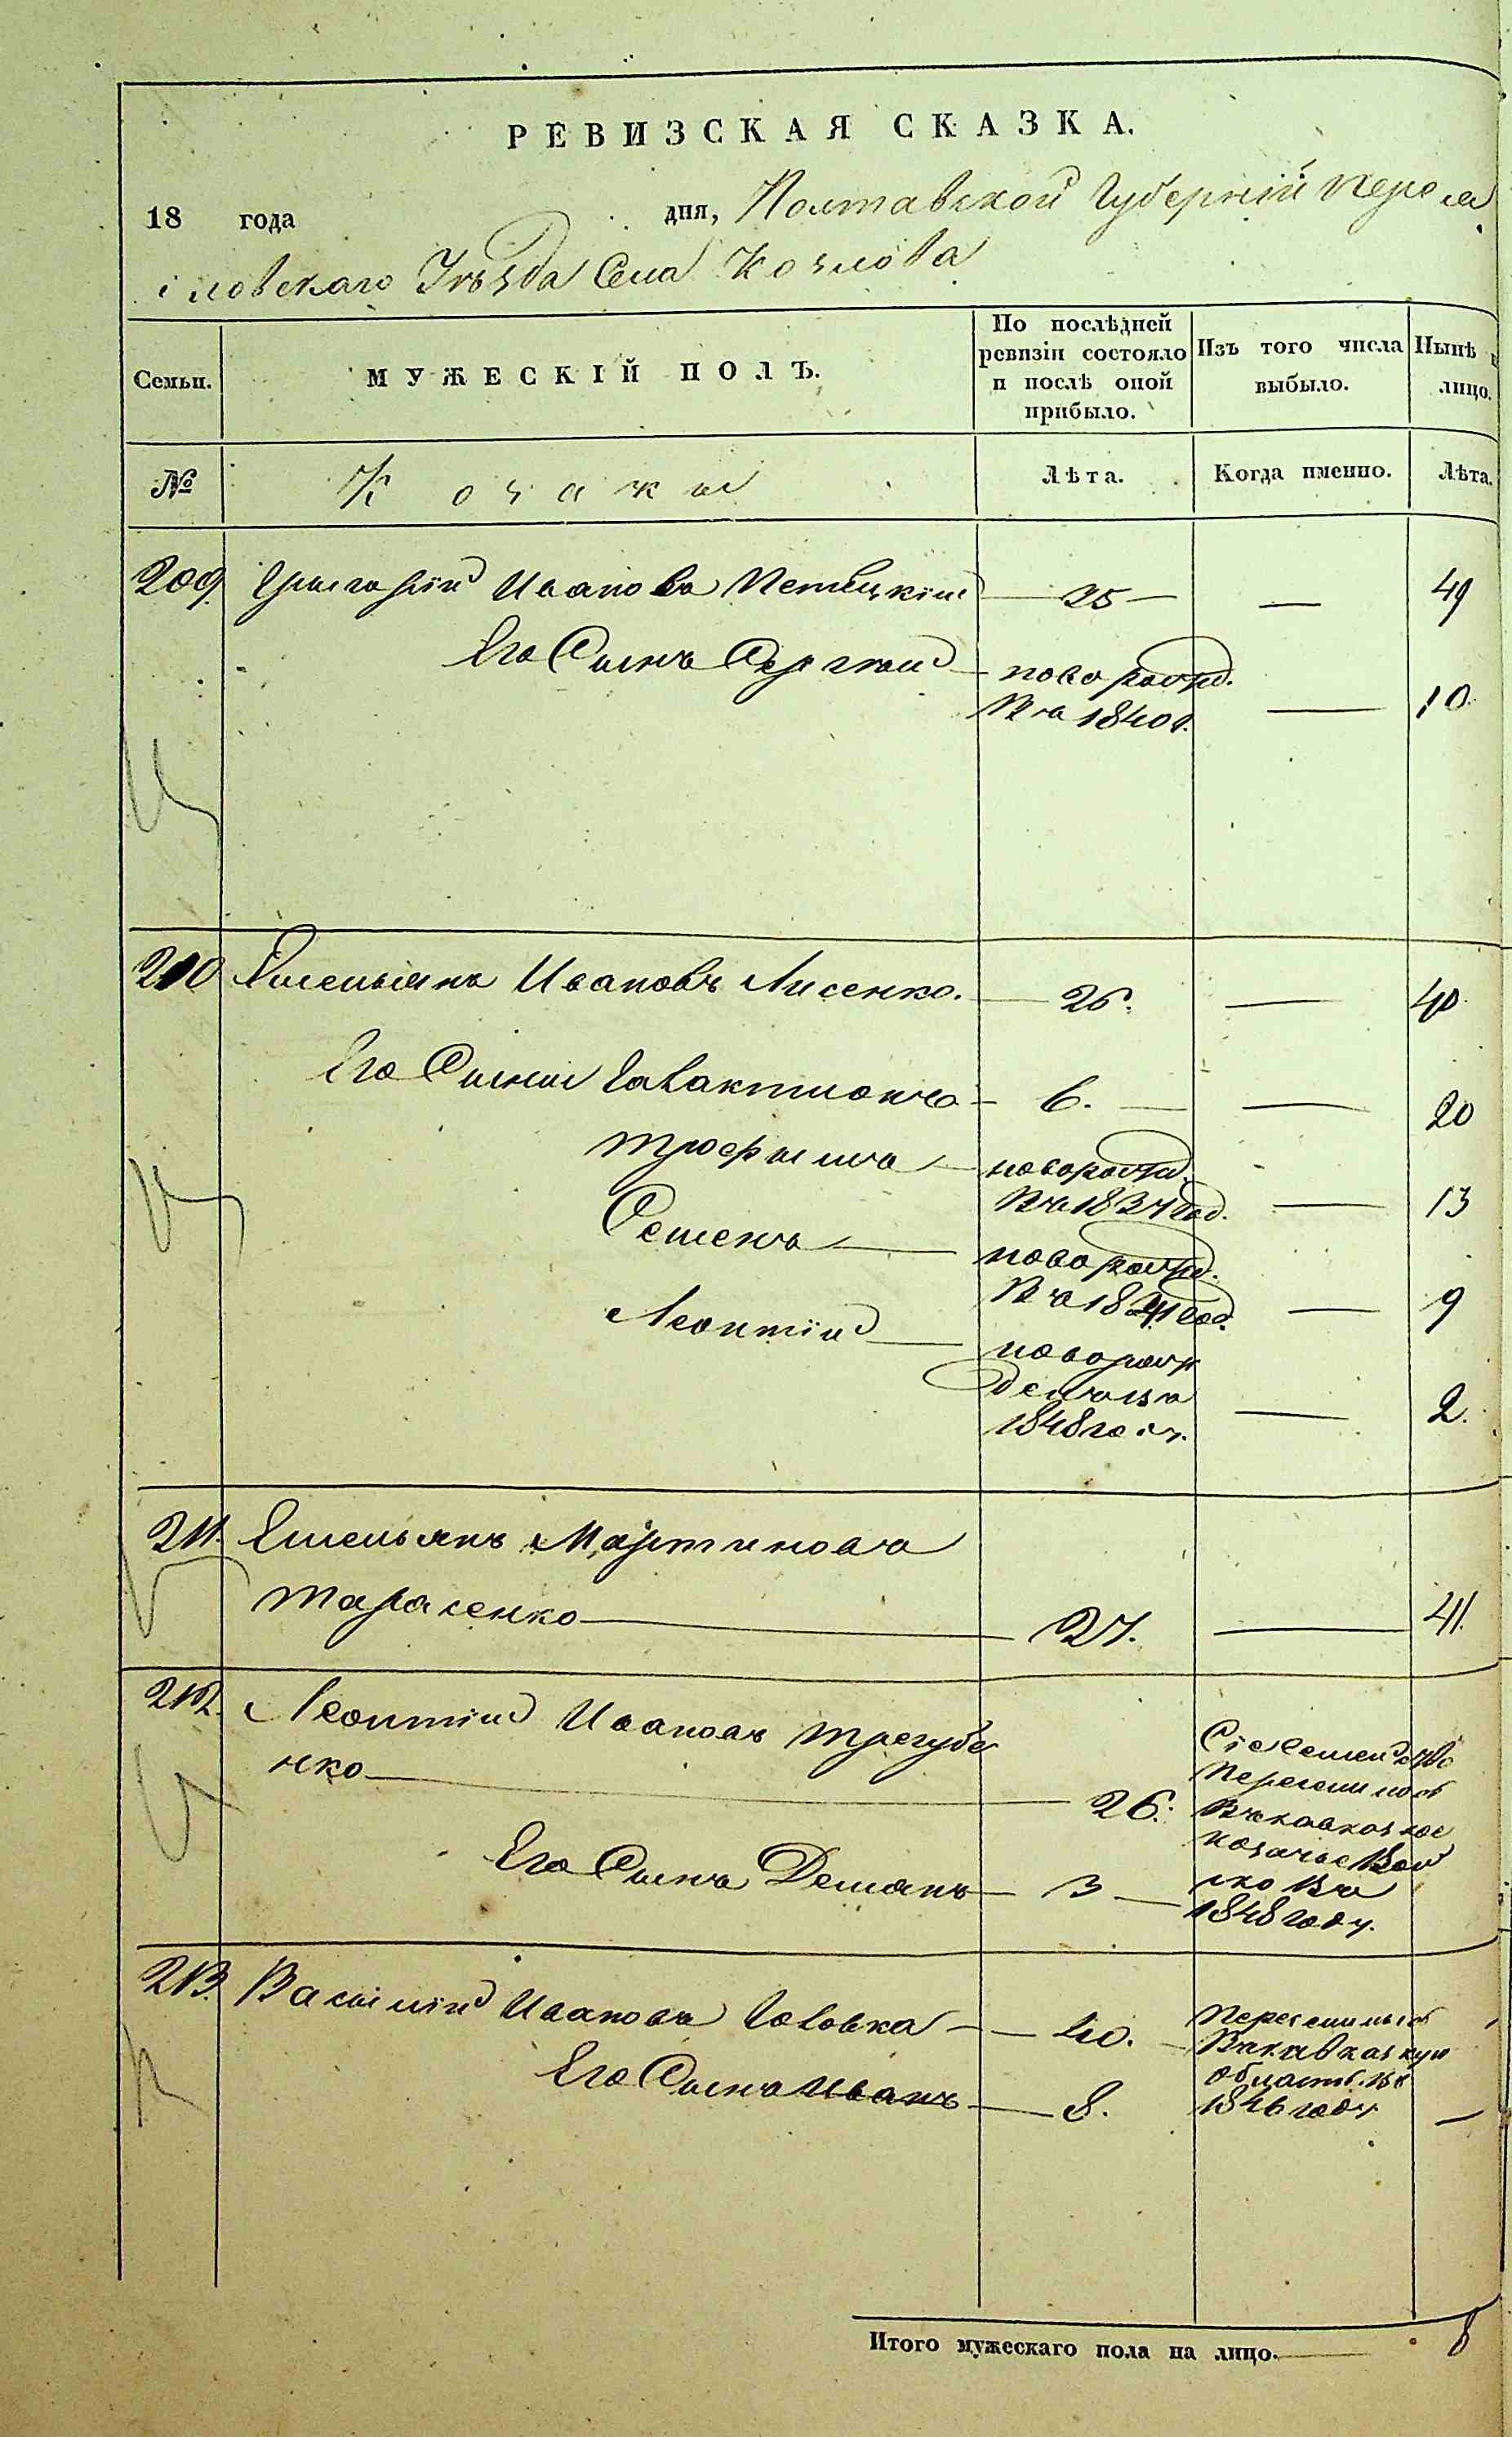 РЕВИЗСКАЯ СКАЗКА.
18 года дня, Полтавской Губерніи Перея
словскаго Уѣзда Села Козлова
Семьи. МУЖЕСКІЙ ПОЛЪ. По послѣдней ревизіи состояло и послѣ оной прибыло. Изъ того числа выбыло. Нынѣ лицо.
№ Козаки Лѣта. Когда именно. Лѣта.
209. Григорій Ивановъ 25 — 49
Его Сынъ Сергѣй новорожд.
въ 1840г. — 10.
210 Емельянъ Ивановъ Лисенко. 26. — 40
Его Сыни Галактионъ 6. — 20
Трофимъ новорожд.
въ 1837 год. — 13
Семенъ новорожд.
въ 1841 год. — 9
Леонтій новорож
денъ въ
1848 году. — 2.
211. Емельянъ Мартиновъ
Тарасенко 27. — 41.
212. Леонтій Ивановъ Трегубе
нко 26.
Его Сынъ Демянъ 3
Сіе Семейство
Переселилось
въ кавказкое
козачье Вой
ско въ
1848 году.
213. Василій Ивановъ Головка 40.
Его Сынъ Иванъ 8. —
Переселились
въ кавказкую
область въ
1846 году
Итого мужескаго пола на лицо. 8